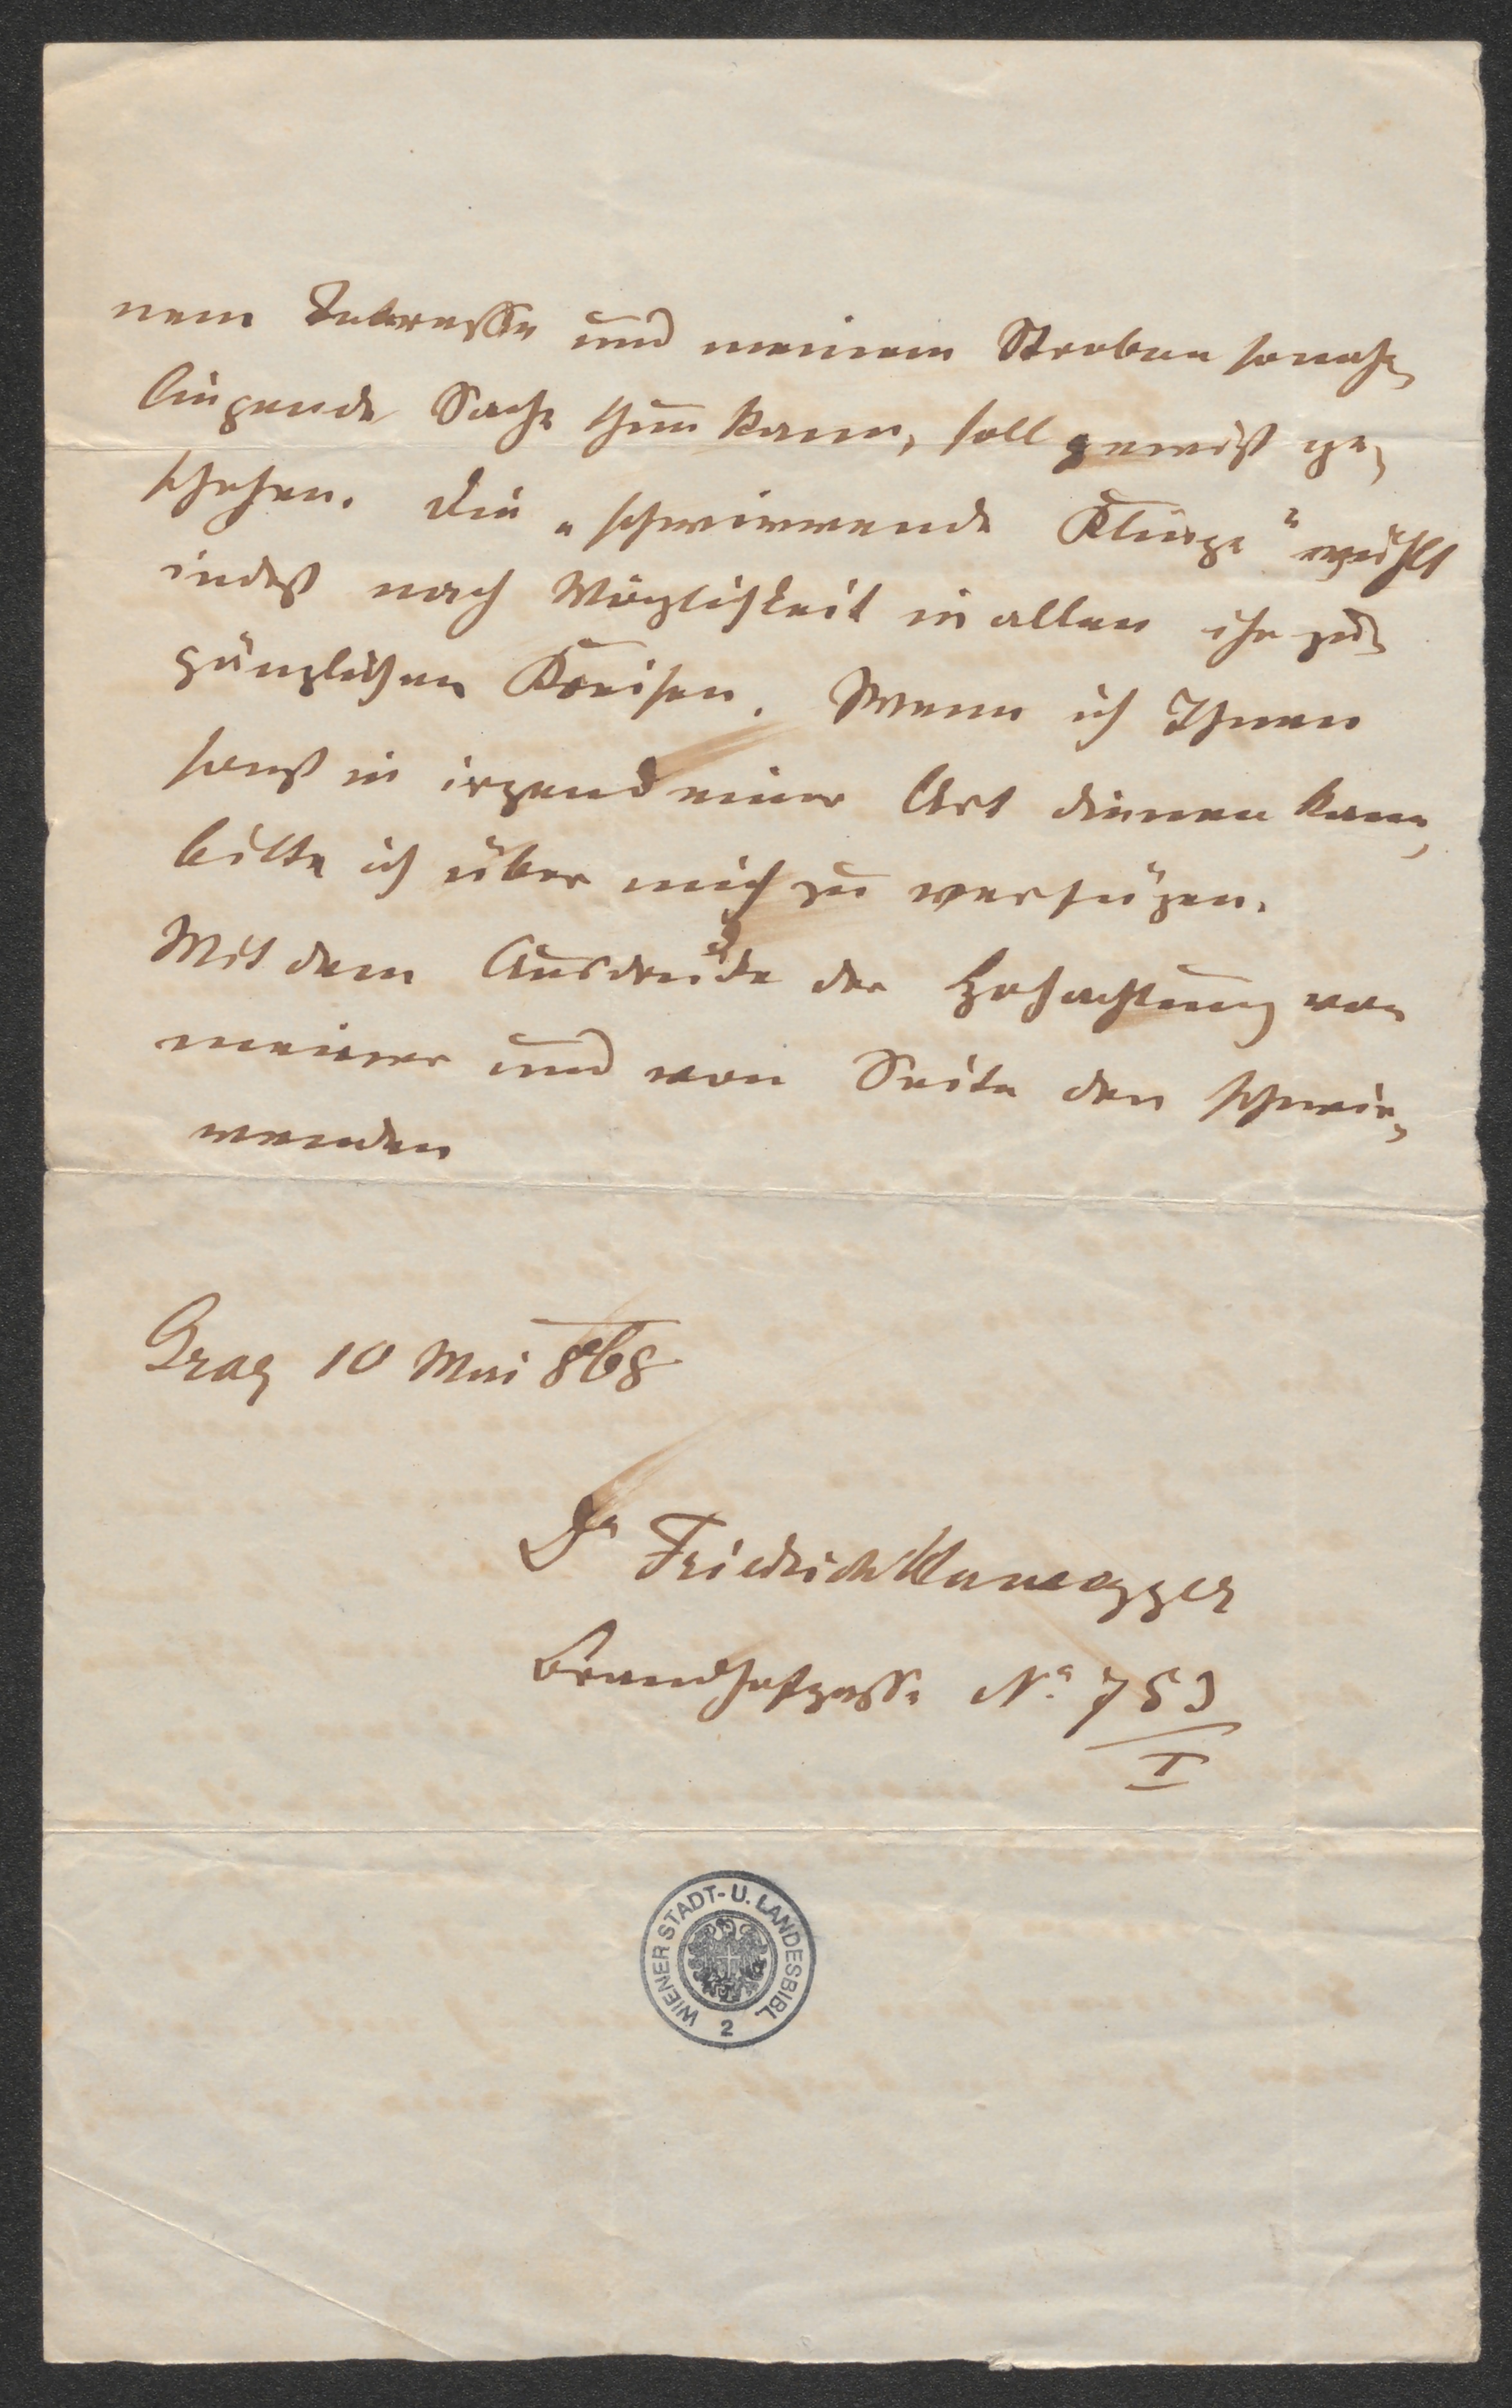 nem Interesse und meinem Streben so nahe
liegende Sache thun kann, soll gewiß ge-
schehen. Die „schwirrende Klinge" wühlt
indeß nach Möglichkeit in allen ihr zu-
gänglichen Kreisen. Wenn ich Ihnen
sonst in irgend einer Art dienen kann,
bitte ich über mich zu verfügen.
Mit dem Ausdrucke der Hochachtung von
meiner und von Seite der schwir-
renden
Graz 10 Mai 868
Dr Friedrich Hausegger
Brandhofgasse No 753
I
WIENER STADT- U. LANDESBIBL.
2